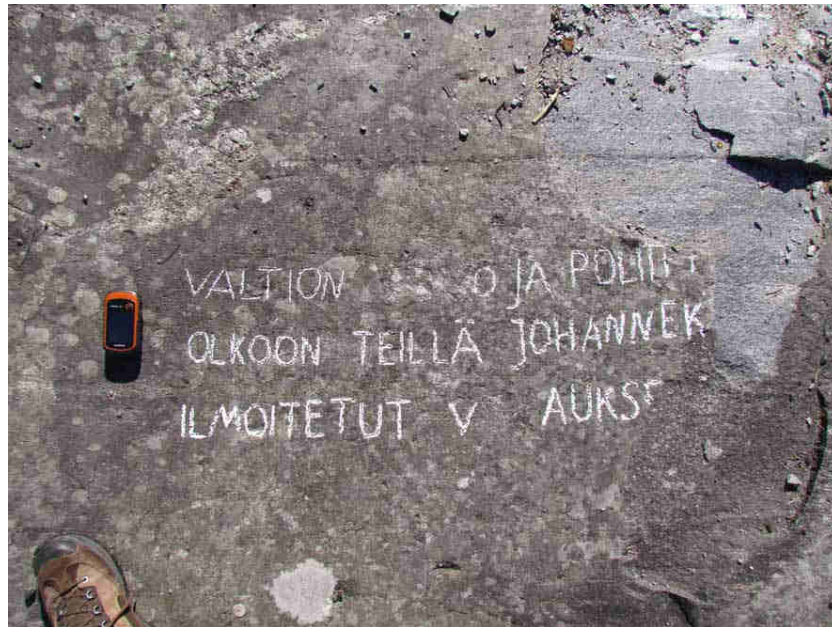 VALTION O JA POLIITI
OLKOON TEILLÄ JOHANNEK
ILMOITETUT V AUKSE